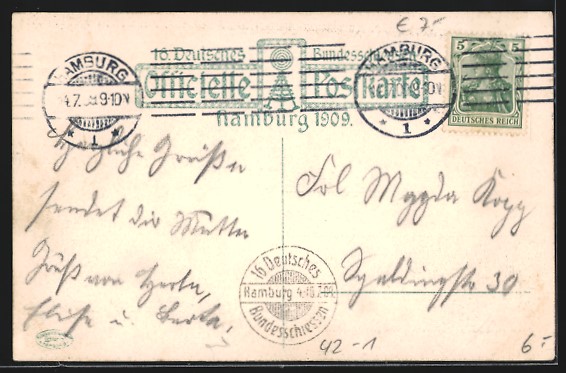 € 7-
16. Deutsches Bundesschießen
Offizielle Postkarte
Hamburg 1909.
HAMBURG
4.7.09.9-10V
* 1 *
HAMBURG
* 1 *
5 5
DEUTSCHES REICH
Herzliche Grüße
sendet die Mutter
Gruß von Herta,
Elise u. Berta,
Frl Magda Kopp
Spaldingstr 30
16 Deutsches
Hamburg 4.
Bundesschiessen
42-1
6-